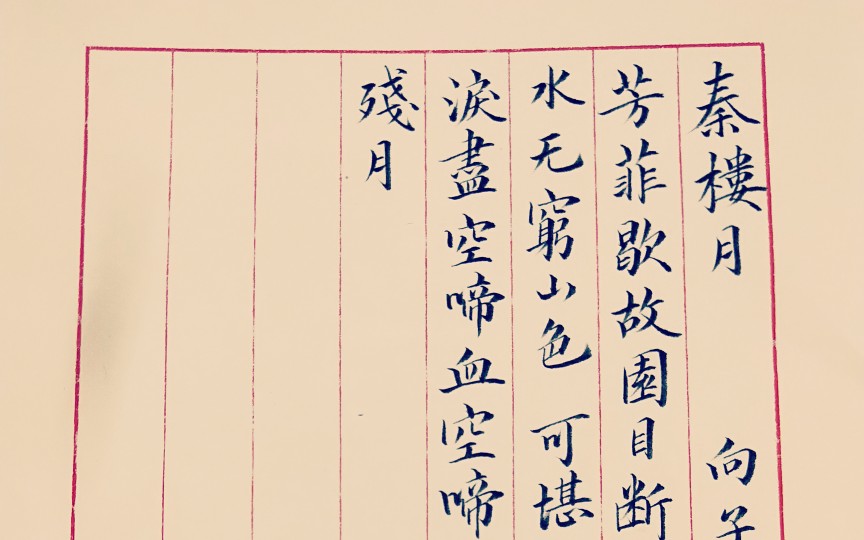 秦樓月 向子
芳菲歇故園目断
水无窮山色可堪
淚盡空啼血空啼
殘月